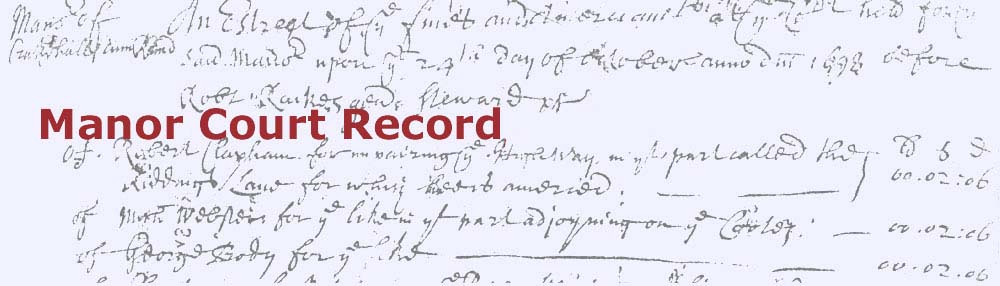 Manr of An Estreat of ye fines and Amerciamts at ye Court held for ye
Crakehall cum Rand said Manor upon ye 24th day of October anno dm 1698 before
Robt Raikes gent Steward of
Manor Court Record
of Robert Clapham for impairing ye High Way in yt part called the lb s d
Riddings Lane for which hee is amerced. 00.02:06
of Webster for ye like in yt part adjoyning on ye : 00.02:06
of George Body for ye like 00.02.06